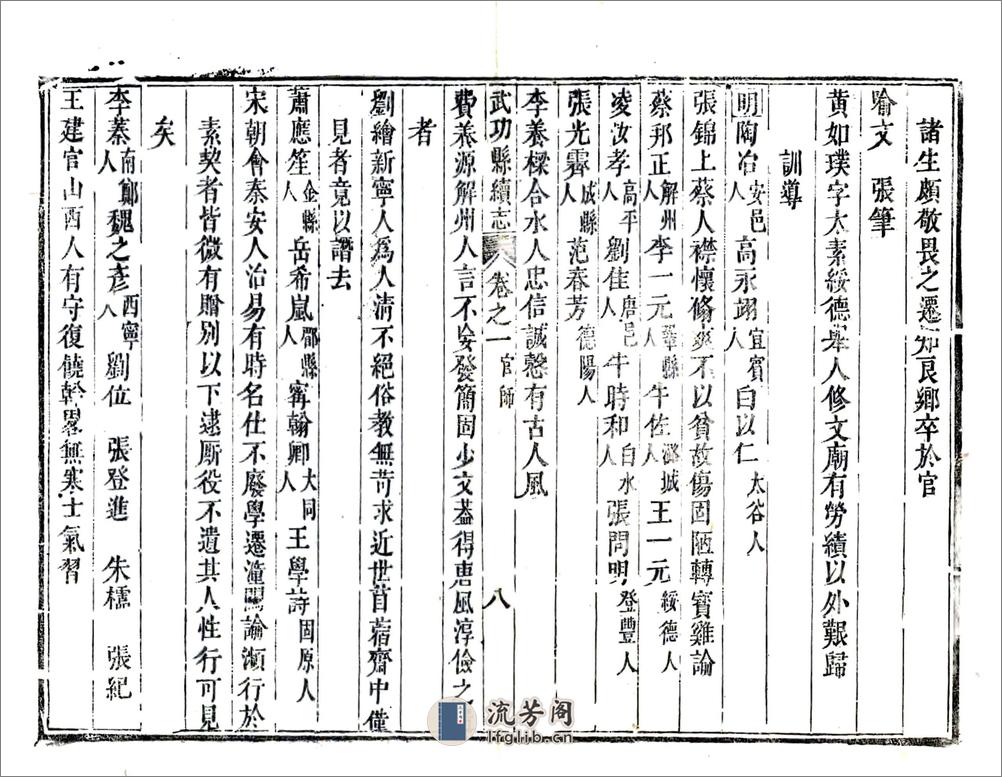 諸生頗敬畏之遷知良鄉卒於官
喻文　張筆
黃如璞字太素綏德舉人修文廟有勞績以外艱歸
訓導
明陶冶安邑人高永翊宜賓人白以仁太谷人
張錦上蔡人襟懷脩爽不以貧故傷固陋轉寶雞諭
蔡邦正解州人李一元華縣人牛佐潞城人王一元綏德人
凌汝孝高平人劉佳唐邑人牛時和白水人張問明登豐人
張光霽成縣人范春芳德陽人
李養樑合水人忠信誠慤有古人風
武功縣續志　卷之一官師　八
費養源解州人言不妄發簡固少文蓋得唐風淳儉之
者
劉繪新寧人爲人清不絕俗教無苛求近世苜蓿齋中僅
見者竟以譖去
蕭應笙金縣人岳希嵐鄠縣人甯翰卿大同人王學詩固原人
宋朝會秦安人治易有時名仕不廢學遷潼關諭瀕行於
素契者皆微有贈别以下逮厮役不遺其人性行可見
矣
李蓁南鄭人魏之彥西寧人劉位　張登進　朱檽　張紀
王建官山西人有守復饒幹畧無寒士氣習
流芳阁
lfglib.cn